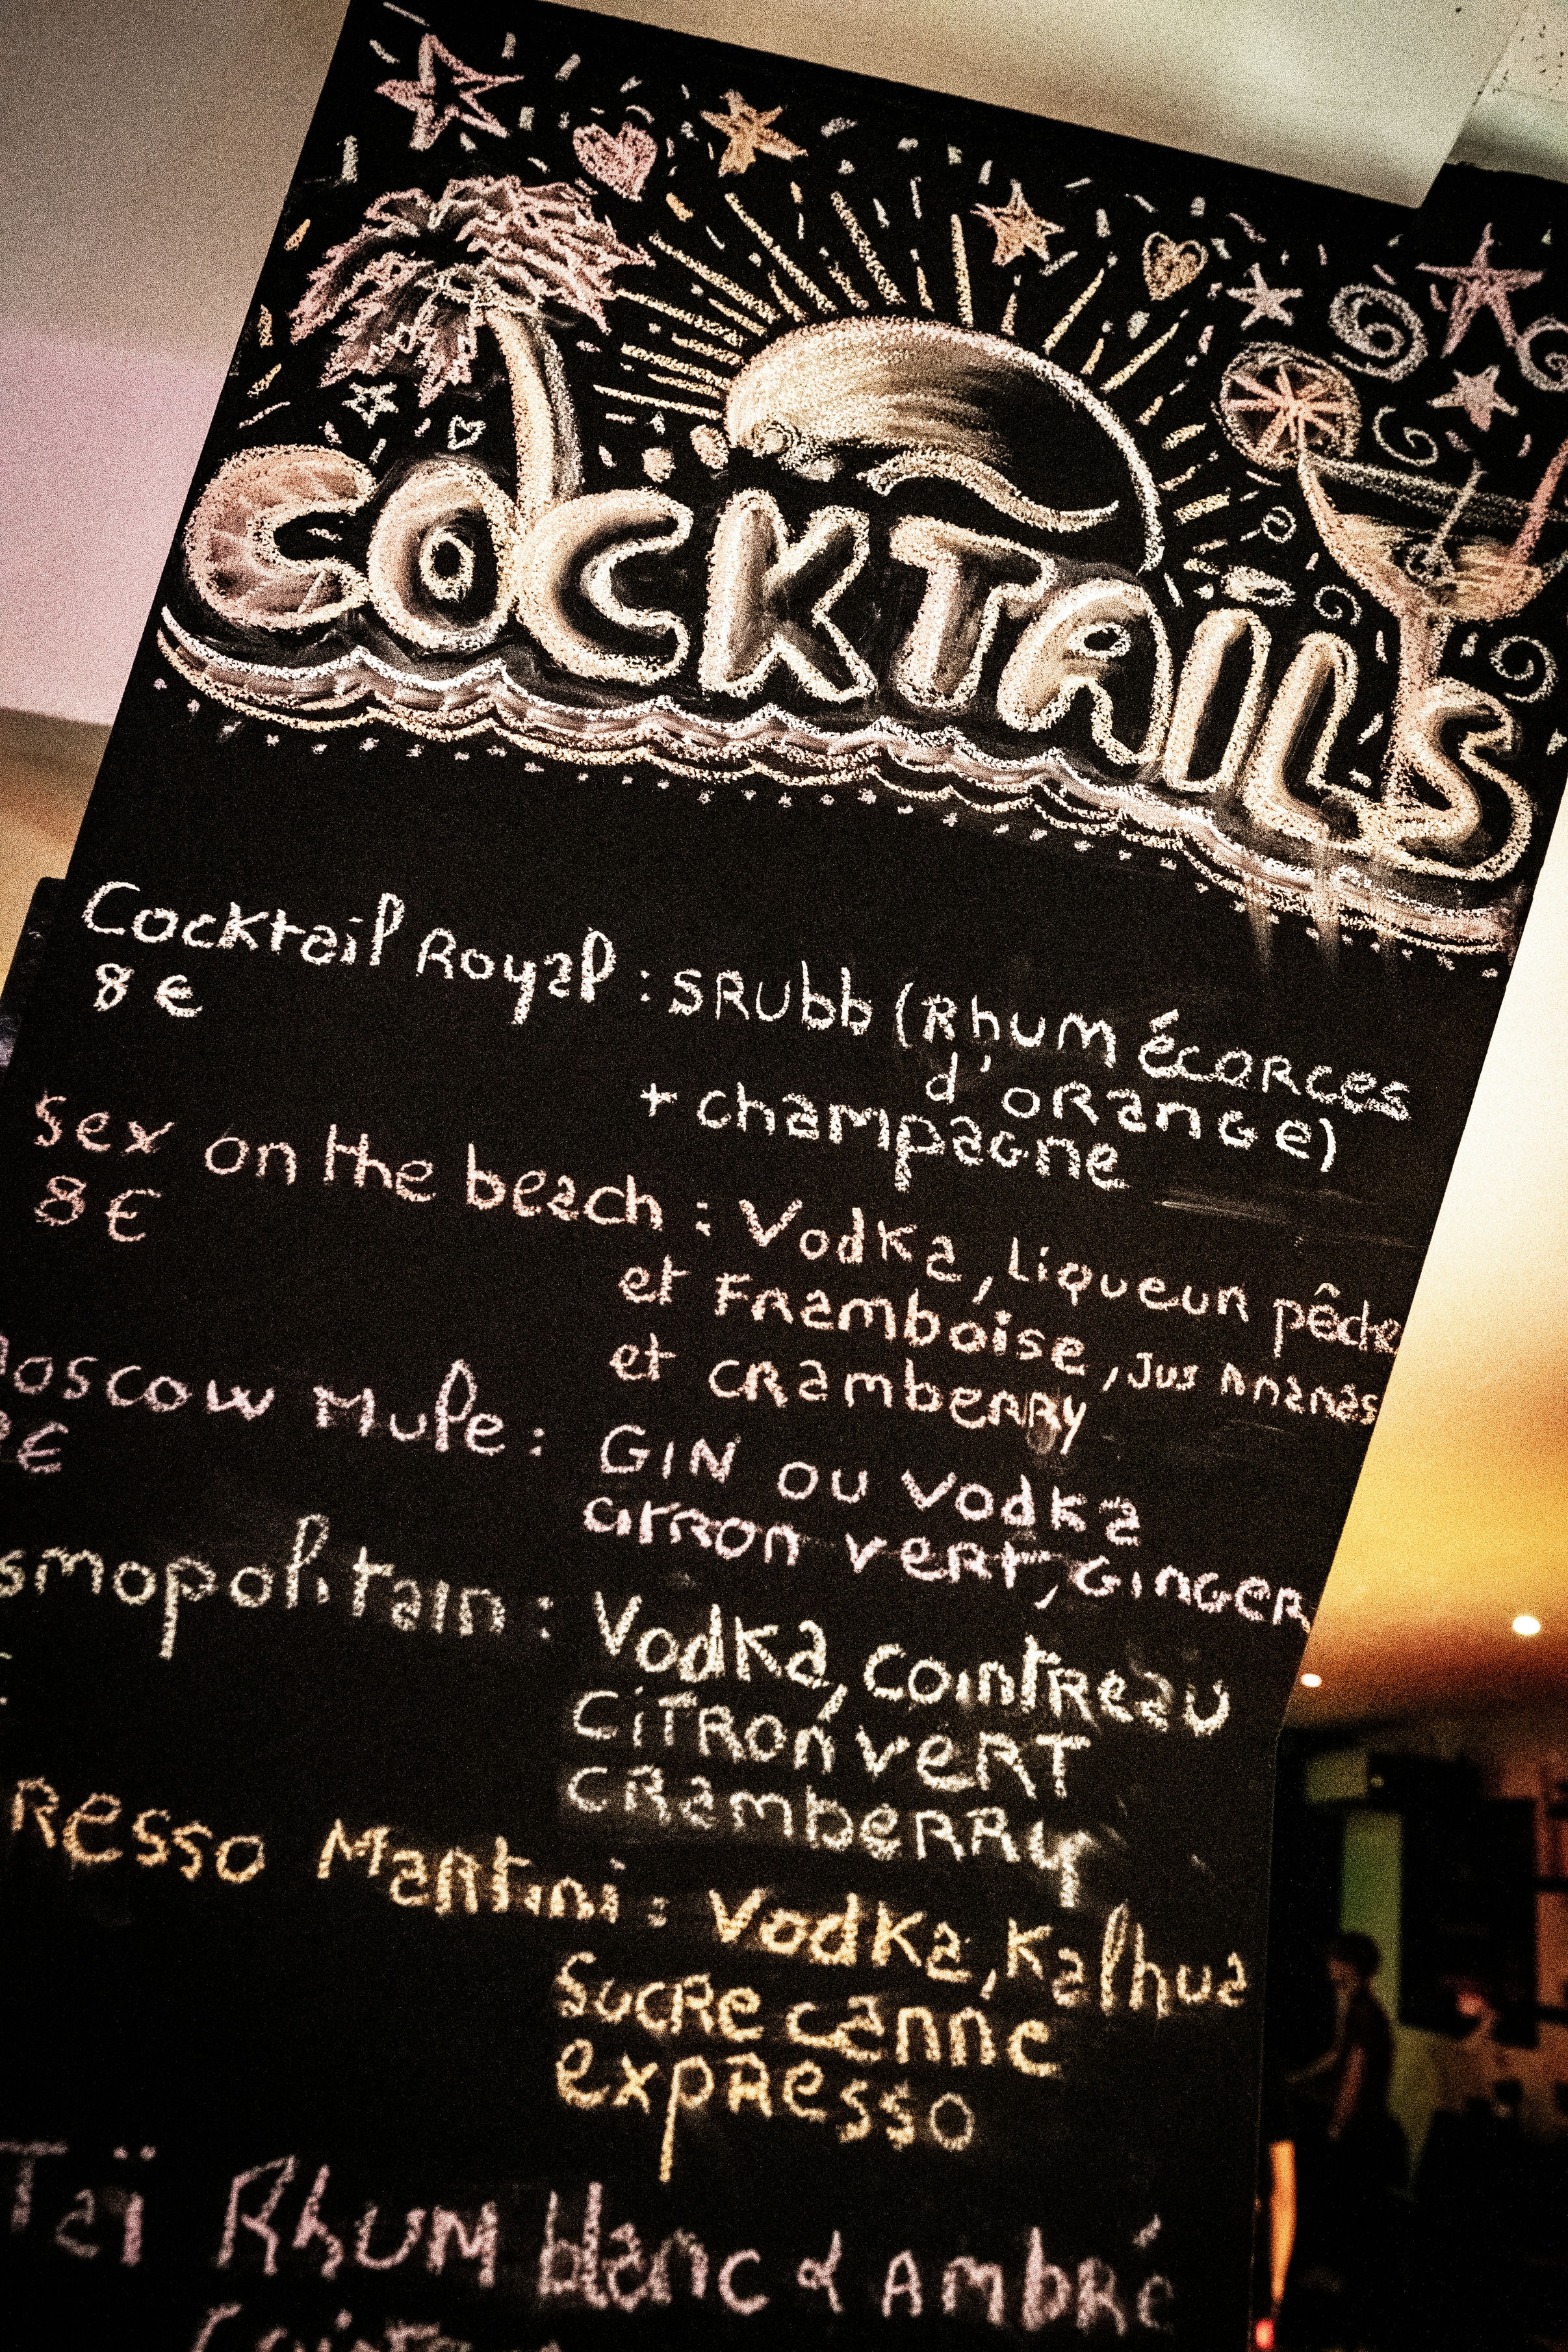 COCKTAILS
Cocktail Royal : SRUbb (Rhum écorces
8 € d'orange)
+ champagne
Sex on the beach : Vodka, Liqueur pêche
8 € et Framboise, Jus Ananas
et cramberry
oscow Mule : GIN ou Vodka
€ citron vert, Ginger
smopolitain : Vodka, cointreau
citron vert
cramberry
resso Martini : Vodka, Kalhua
Sucre canne
expresso
Taï Rhum blanc & Ambré